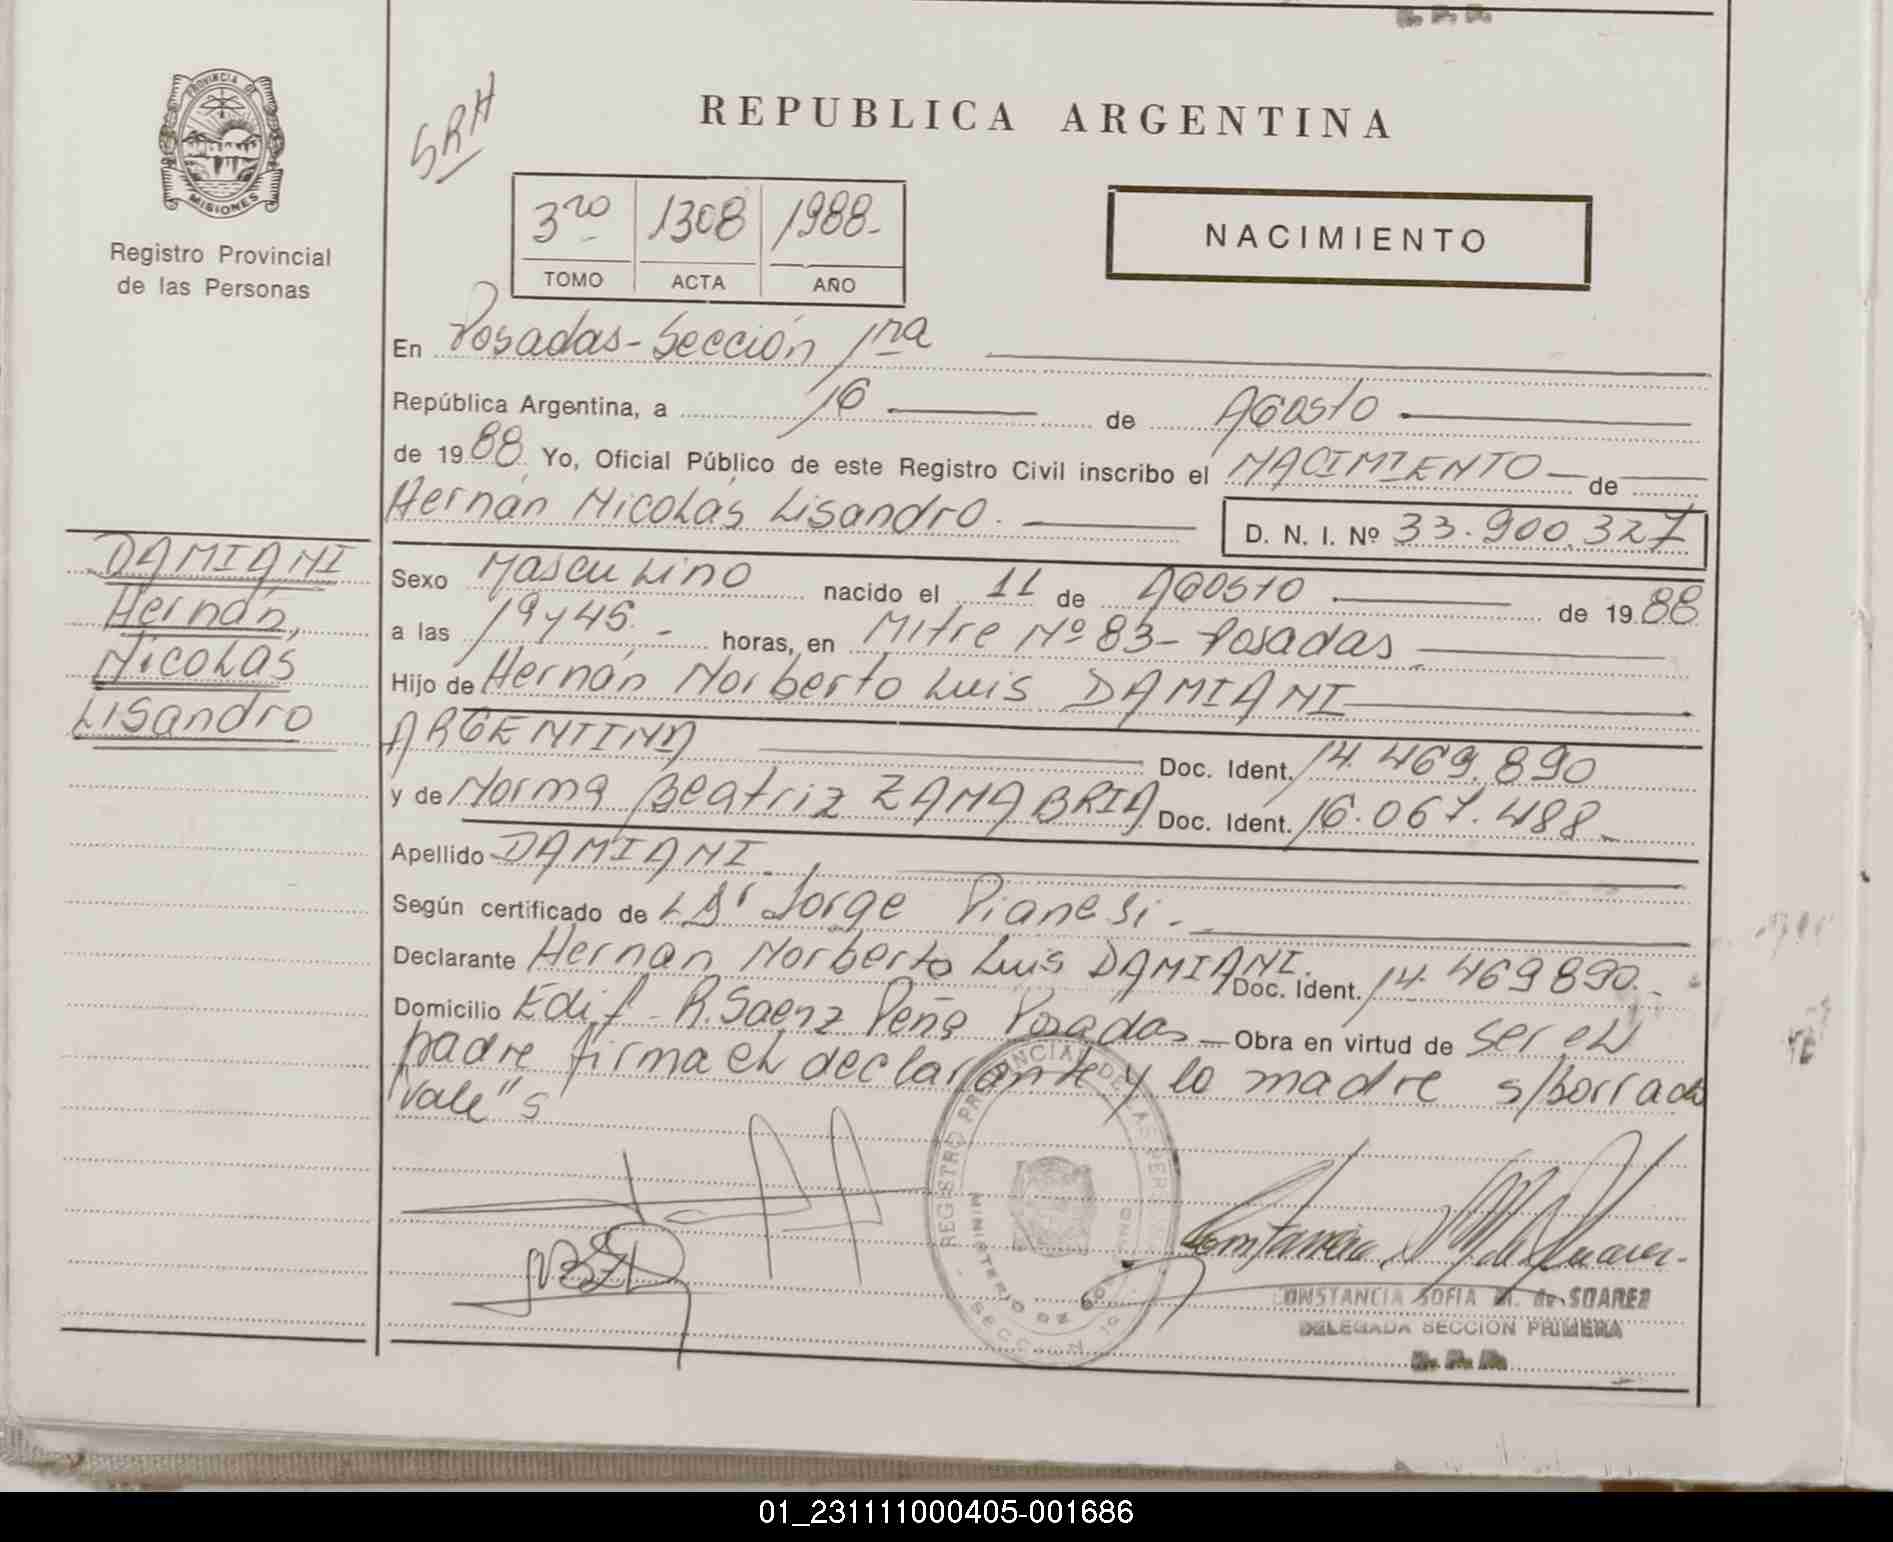 R. P. P.
PROVINCIA DE
MISIONES
Registro Provincial
de las Personas
SRH
REPUBLICA ARGENTINA
3ro 1308 1988-
TOMO ACTA AÑO
NACIMIENTO
En Posadas-Sección 1ra
República Argentina, a 16 de Agosto
de 1988 Yo, Oficial Público de este Registro Civil inscribo el NACIMIENTO de
Hernán Nicolás Lisandro. D. N. I. Nº 33.900.327
DAMIANI
Hernán,
Nicolás
Lisandro
Sexo Masculino nacido el 11 de Agosto de 1988
a las 19 y 45.- horas, en Mitre Nº 83- Posadas
Hijo de Hernán Norberto Luis DAMIANI
ARGENTINA Doc. Ident. 14.469.890
y de Norma Beatriz ZAMABRIA Doc. Ident. 16.067.488-
Apellido DAMIANI.
Según certificado de Jorge Pianesi.
Declarante Hernan Norberto Luis DAMIANI. Doc. Ident. 14.469890.-
Domicilio Edif. R. Saenz Peña Posadas- Obra en virtud de ser el
padre firma el declarante y la madre s/borrado
"Vale"
REGISTRO PROVINCIAL DE LAS PERSONAS
MINISTERIO DE GOB
SECCION 1º
CONSTANCIA SOFIA M. de SUAREZ
DELEGADA SECCION PRIMERA
R. P. P.
01_231111000405-001686